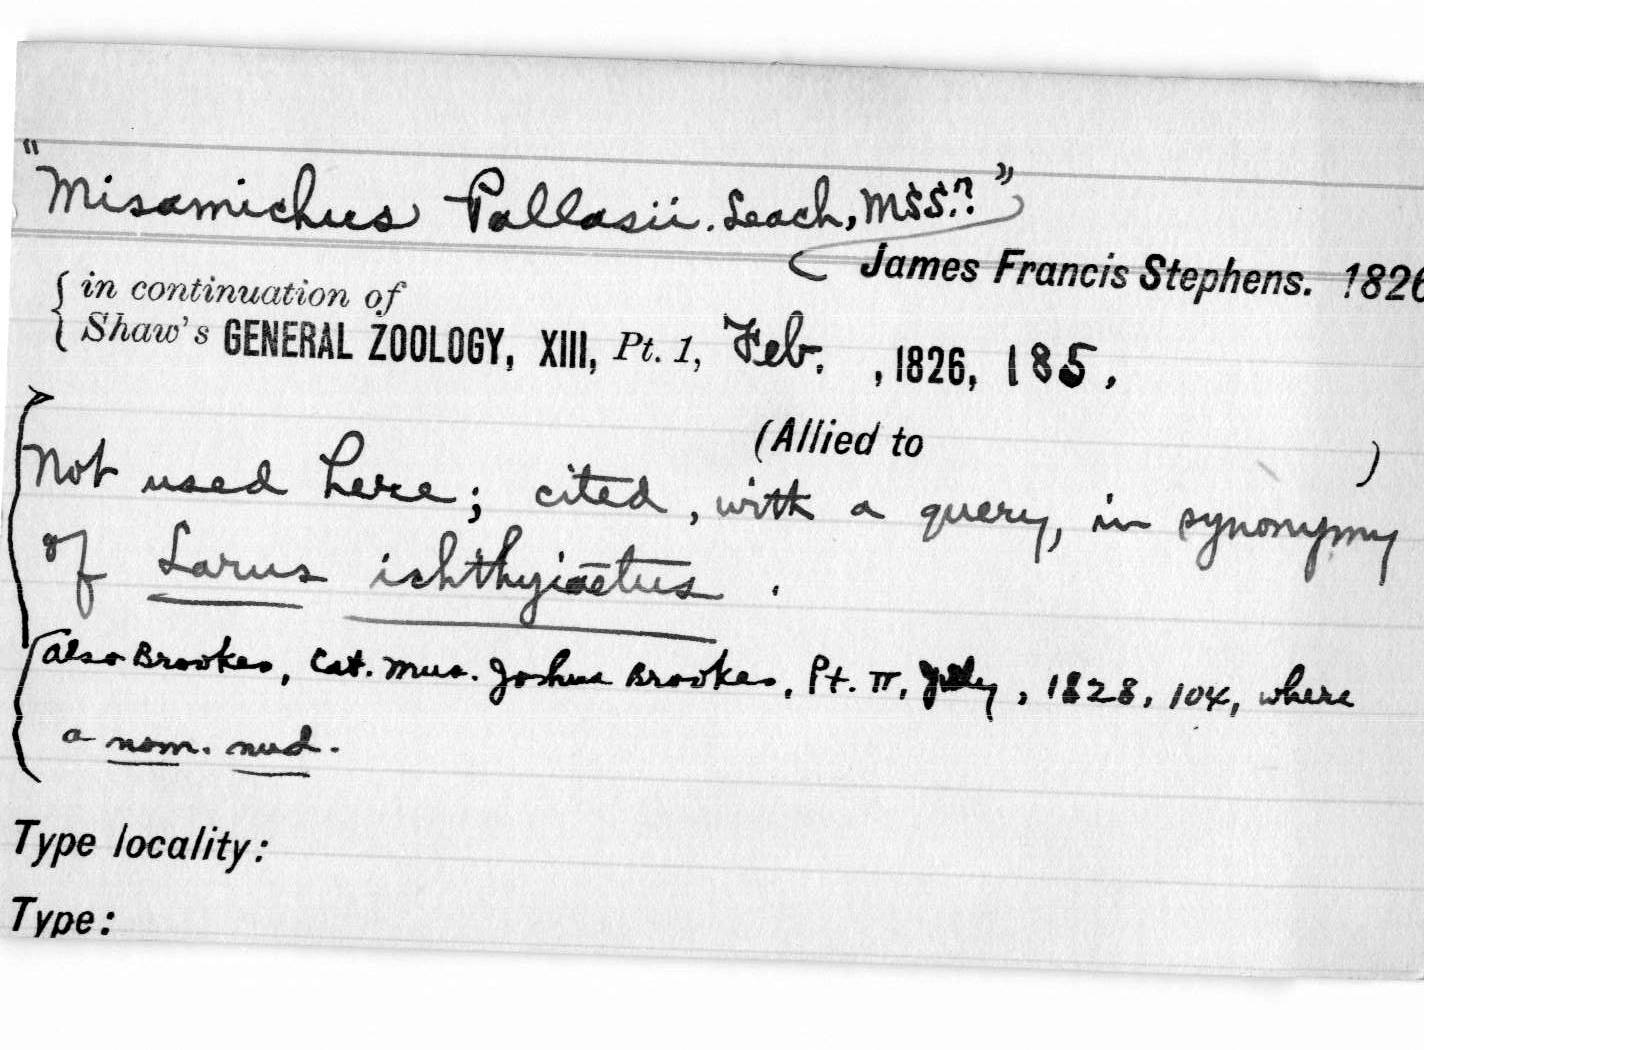 "Misamichus Pallasii. Leach, MSS.?"
James Francis Stephens. 1826
in continuation of
Shaw's GENERAL ZOOLOGY, XIII, Pt. 1, Feb. , 1826, 185.
(Allied to )
Not used here; cited, with a query, in synonymy
of Larus ichthyiaetus.
Also Brookes, Cat. Mus. Joshua Brookes, Pt. II, July, 1828, 104, where
a nom. nud.
Type locality:
Type: